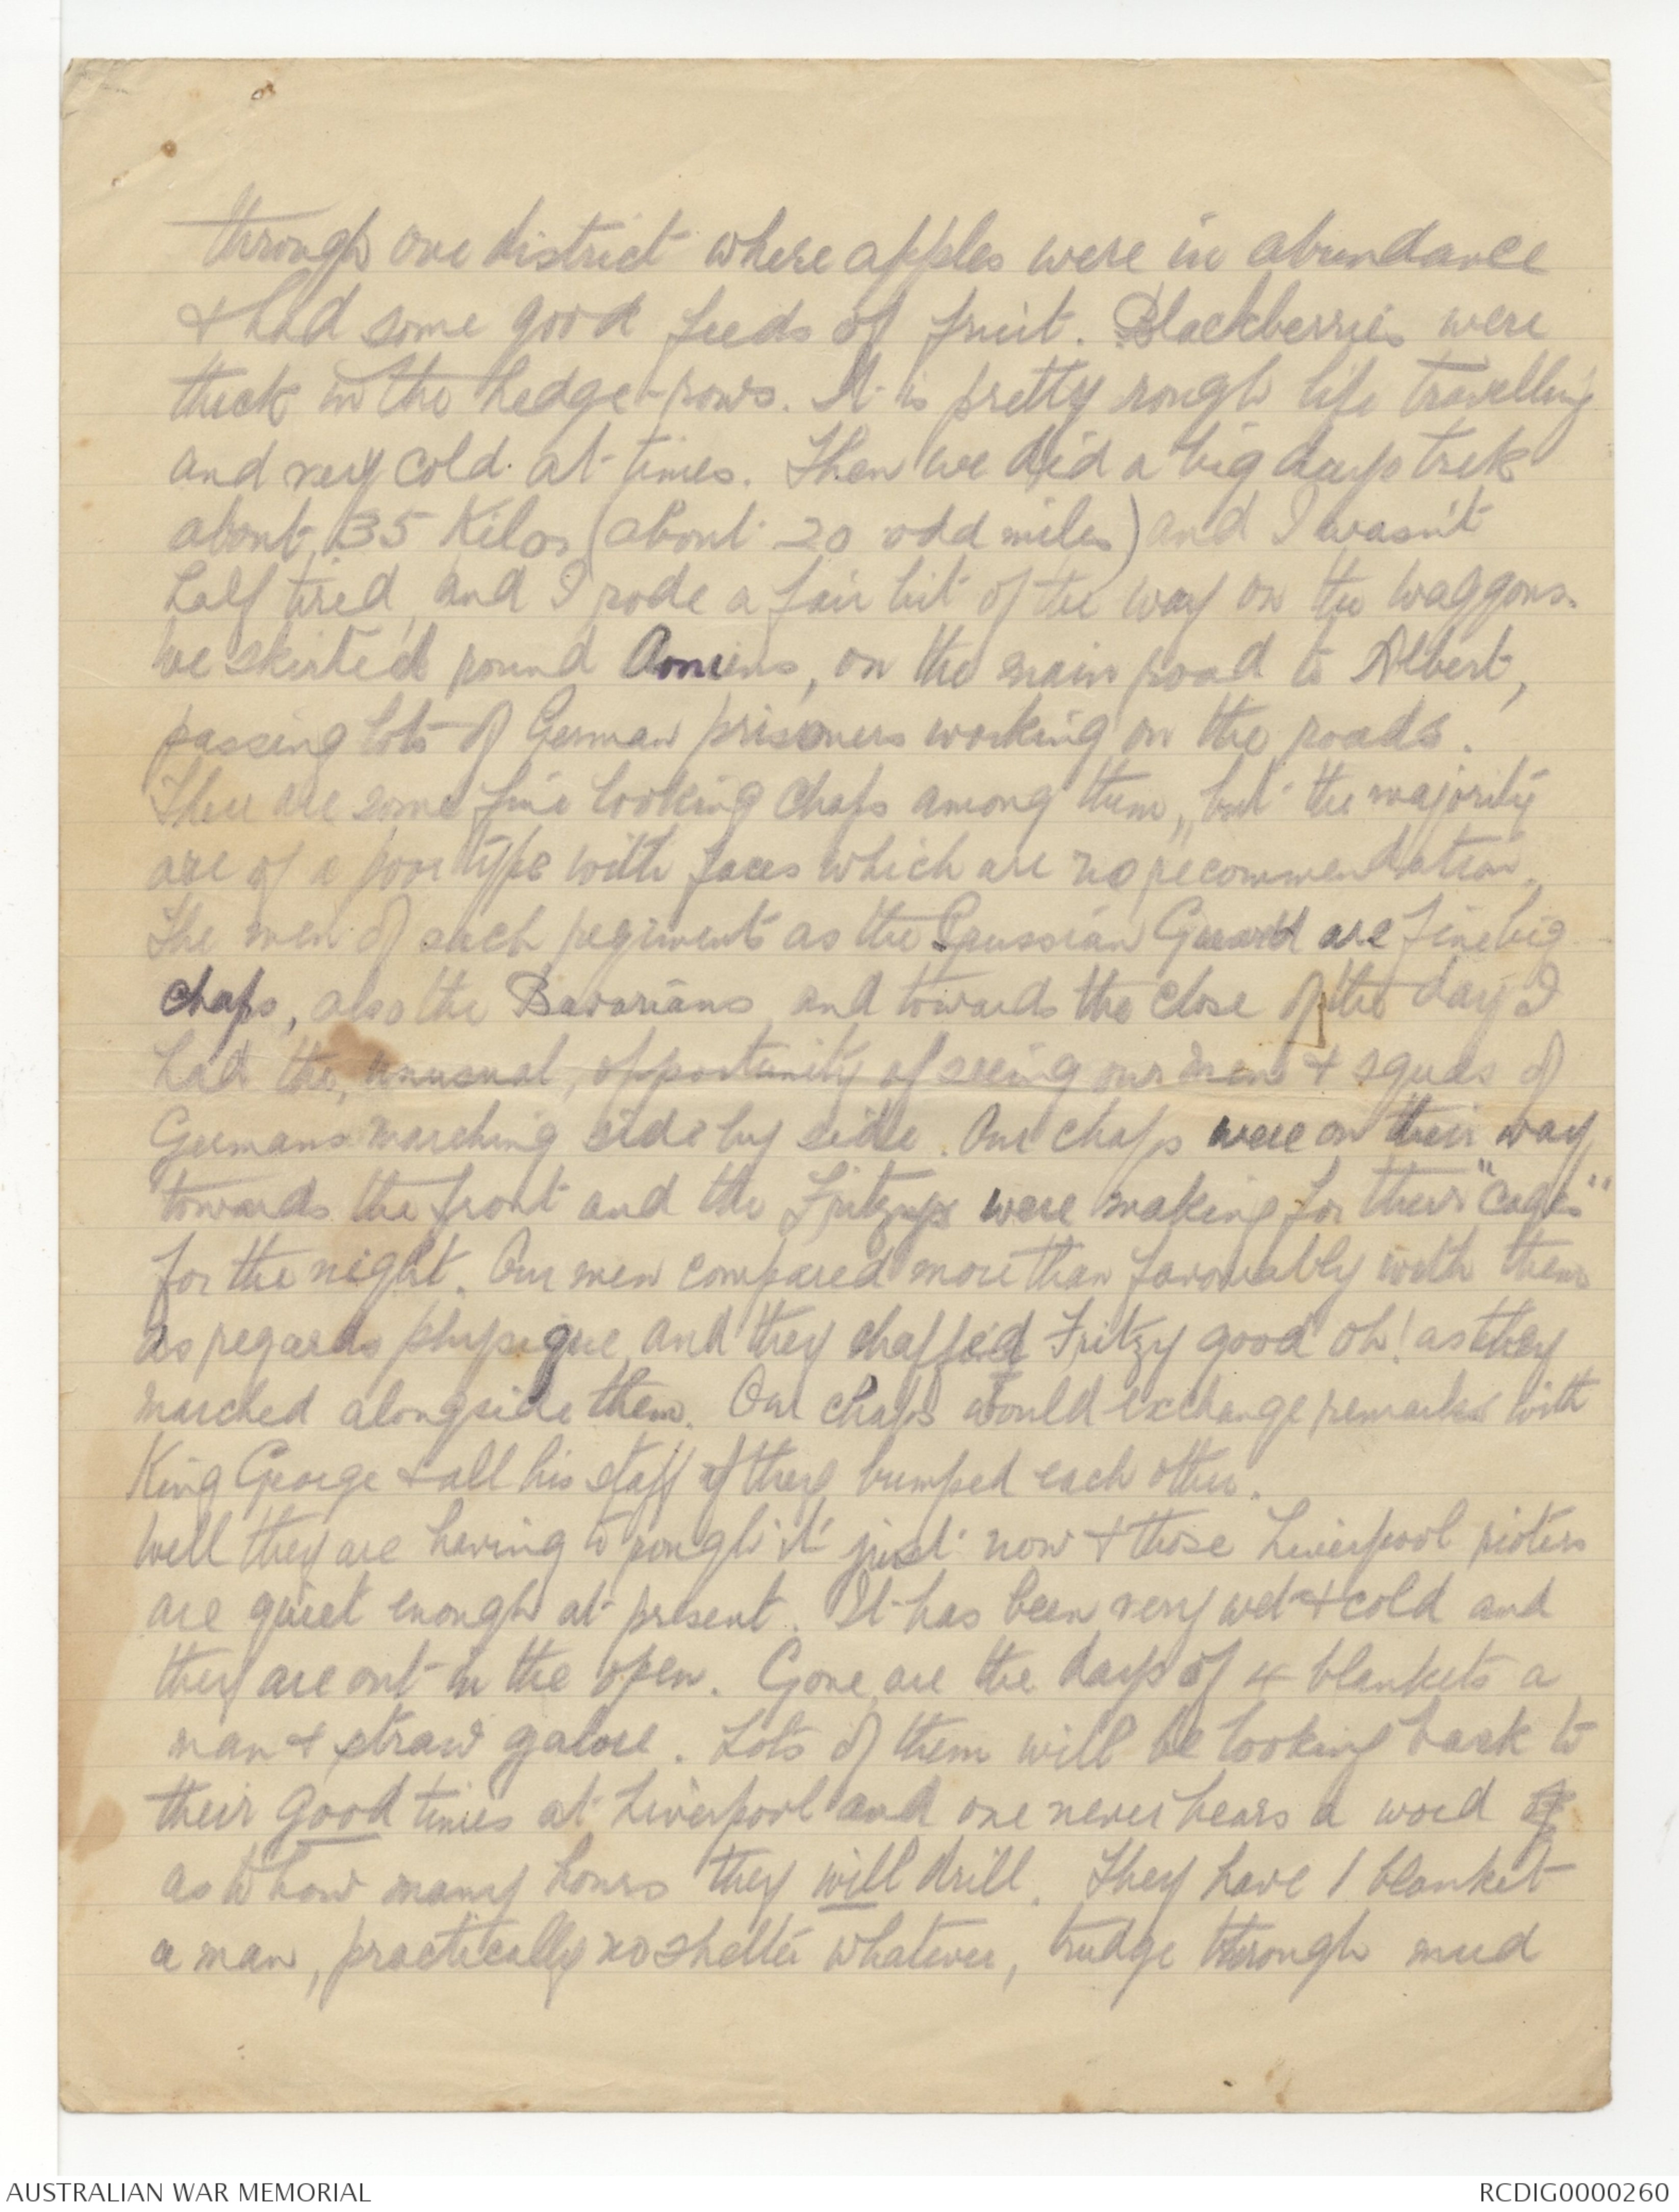 through one district where apples were in abundance
& had some good feeds of fruit. Blackberries were
thick in the hedge-rows. It is pretty rough life travelling
and very cold at times. Then we did a big days trek
about 35 Kilos (about 20 odd miles) and I wasn't
half tired, and I rode a fair bit of the way on the waggons.
We skirted round Amiens, on the main road to Albert,
passing lots of German prisoners working on the roads.
There are some fine looking chaps among them, but the majority
are of a poor type with faces which are no recommendation.
The men of such regiments as the Prussian Guard are fine big
chaps, also the Bavarians and towards the close of the day I
had the, unusual, opportunity of seeing our men & squads of
Germans marching side by side. Our chaps were on their way
towards the front and the Fritzys were making for their "Cages"
for the night. Our men compared more than favourably with them
as regards physique, and they chaffed Fritzy good oh! as they
marched alongside them. Our chaps would exchange remarks with
King George & all his staff if they bumped each other.
Well they are having to rough it just now & those Liverpool rioters
are quiet enough at present. It has been very wet & cold and
they are out in the open. Gone are the days of 4 blankets a
man & straw galore. Lots of them will be looking back to
their good times at Liverpool and one never hears a word
as to how many hours they will drill. They have 1 blanket
a man, practically no shelter whatever, trudge through mud
AUSTRALIAN WAR MEMORIAL
RCDIG0000260